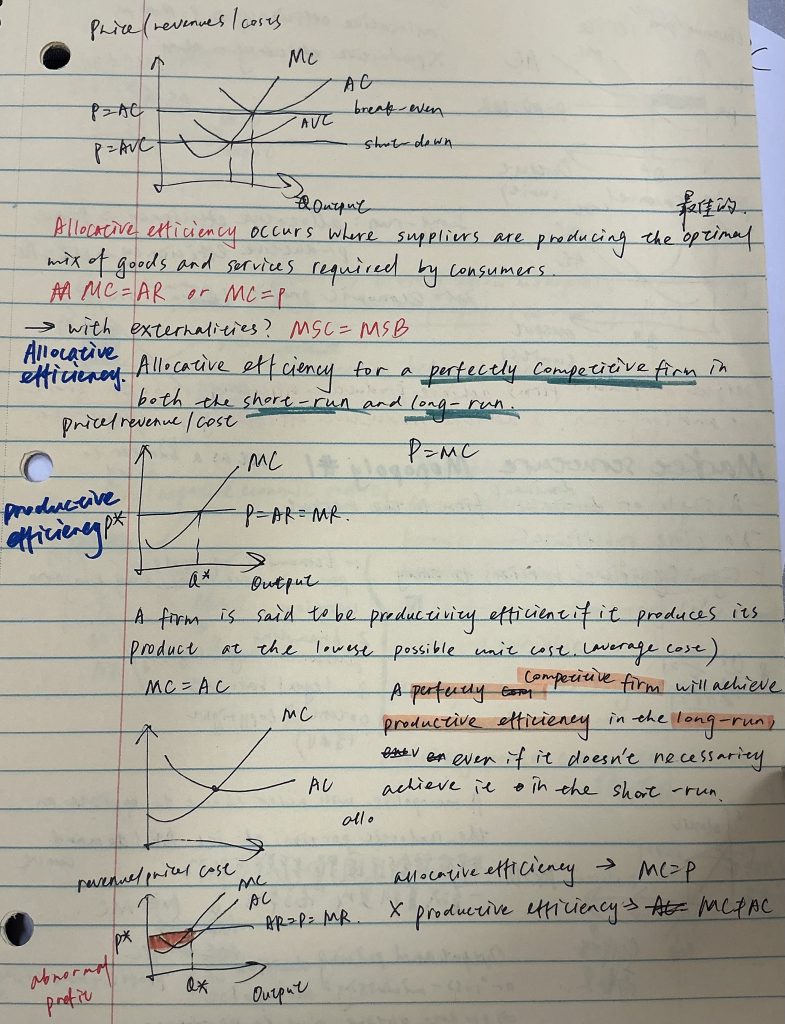 Price/revenues/costs
MC
AC
P=AC
break-even
AVC
P=AVC
shut-down
Output
最佳的.
Allocative efficiency occurs where suppliers are producing the optimal
mix of goods and services required by consumers.
MC=AR or MC=P
→ with externalities? MSC=MSB
Allocative
efficiency.
Allocative efficiency for a perfectly competitive firm in
both the short-run and long-run.
price/revenue/cost
P=MC
MC
productive
efficiency
P*
P=AR=MR.
Q*
Output
A firm is said to be productivity efficient if it produces its
product at the lowest possible unit cost. (average cost)
MC=AC
A perfectly competitive firm will achieve
productive efficiency in the long-run,
even if it doesn't necessarity
achieve it in the short-run.
MC
AC
allo
revenue/price/cost
allocative efficiency → MC=P
X productive efficiency → MC≠AC
MC
AC
AR=P=MR.
P*
Q*
Output
abnormal
profit